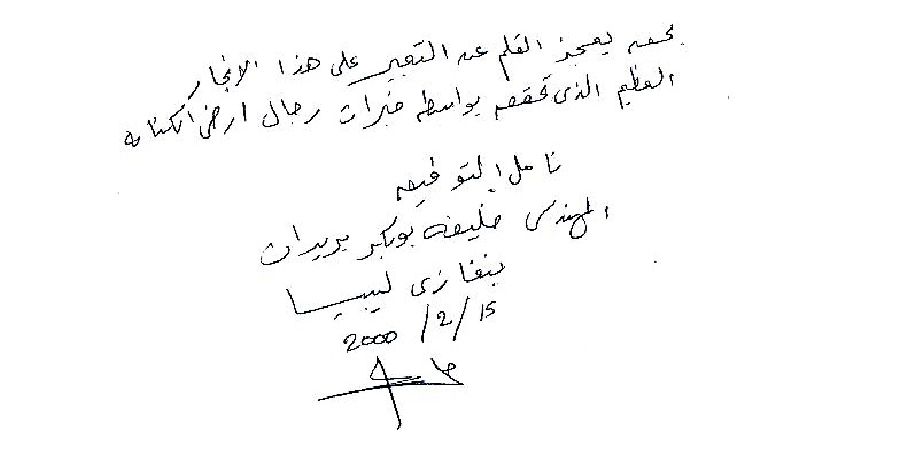 بحق يعجز القلم عن التعبير على هذا الانجاز
العظيم الذى تحقق بواسطة خبرات رجال ارض الكنانه
نامل التوفيق
المهندس خليفه بوبكر بريدان
بنغازى ليبيا
2000 /2/15